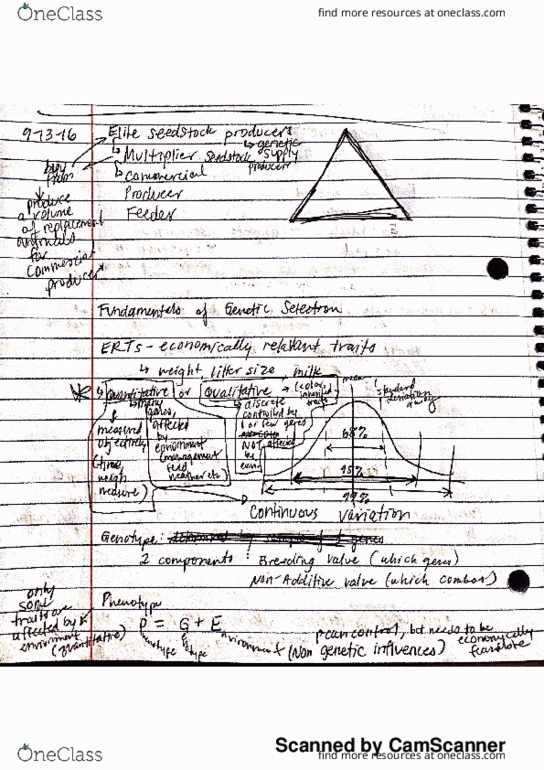 OneClass
find more resources at oneclass.com
9-13-16
Elite seedstock producers
↳ genetic supply
Multiplier seedstock producer
↳ commercial
Producer
Feeder
buy from
↓
produce
a volume
of replacement
animals
for
commercial
producer
Fundamentals of Genetic Selection
ERTs - economically relevant traits
↳ weight, litter size, milk
Quantitative or Qualitative
(color,
inherited
traits)
mean
1 standard
deviation
away
↳ many
genes,
affected
by
enviornment
(management
feed
weather etc)
measured
objectively
(time,
weigh
measure)
↳ discrete
controlled by
1 or few genes
NOT affected
by
envir
68%
95%
99%
Continuous Variation
Genotype:
2 components: Breeding value (which genes)
Non-Additive value (which combos)
only
some
traits are
affected by E
enviornment
(quantitative)
Phenotype
P = G + E
henotype
enotype
environment (Non genetic influences)
can control, but needs to be
economically
feasible
Scanned by CamScanner
OneClass
find more resources at oneclass.com